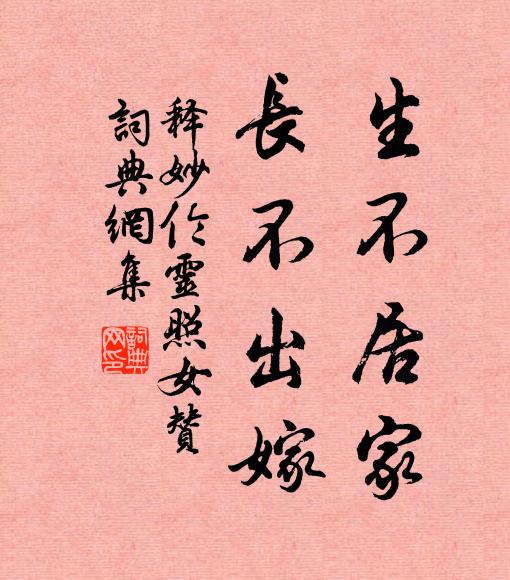 生不居家
長不出嫁
释妙伦靈照女贊
詞典網集
詞典網印